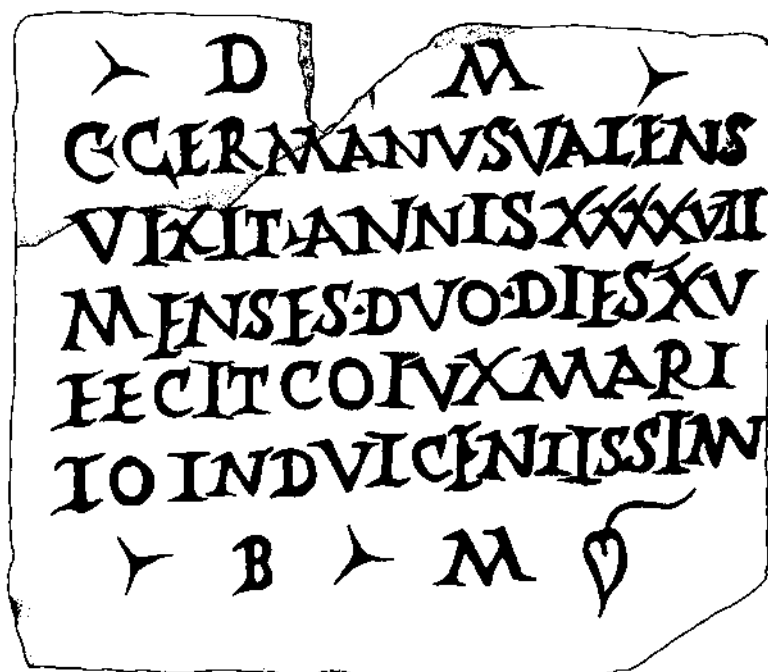 D M
C GERMANVS VALENS
VIXIT ANNIS XXXXVII
MENSES·DVO·DIES XV
FECIT COIVX MARI
IO INDVICENIISSIM
B M